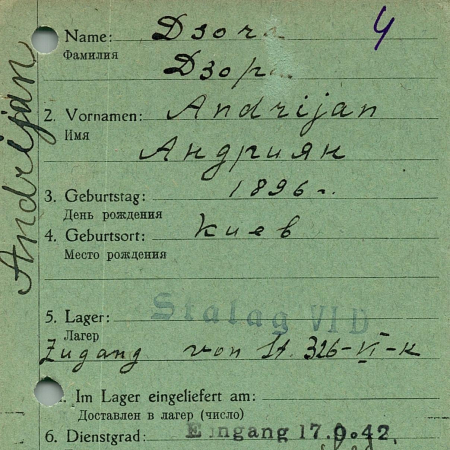 Andrijan
Name: Dzora
Фамилия
Дзора
2. Vornamen: Andrijan
Имя
Андриян
3. Geburtstag: 1896 г.
День рождения
4. Geburtsort: Киев
Место рождения
5. Lager: Stalag VI D
Лагер
Zugang von St. 326-VI-K
Im Lager eingeliefert am:
Доставлен в лагер (число)
6. Dienstgrad: Eingang 17.9.42.